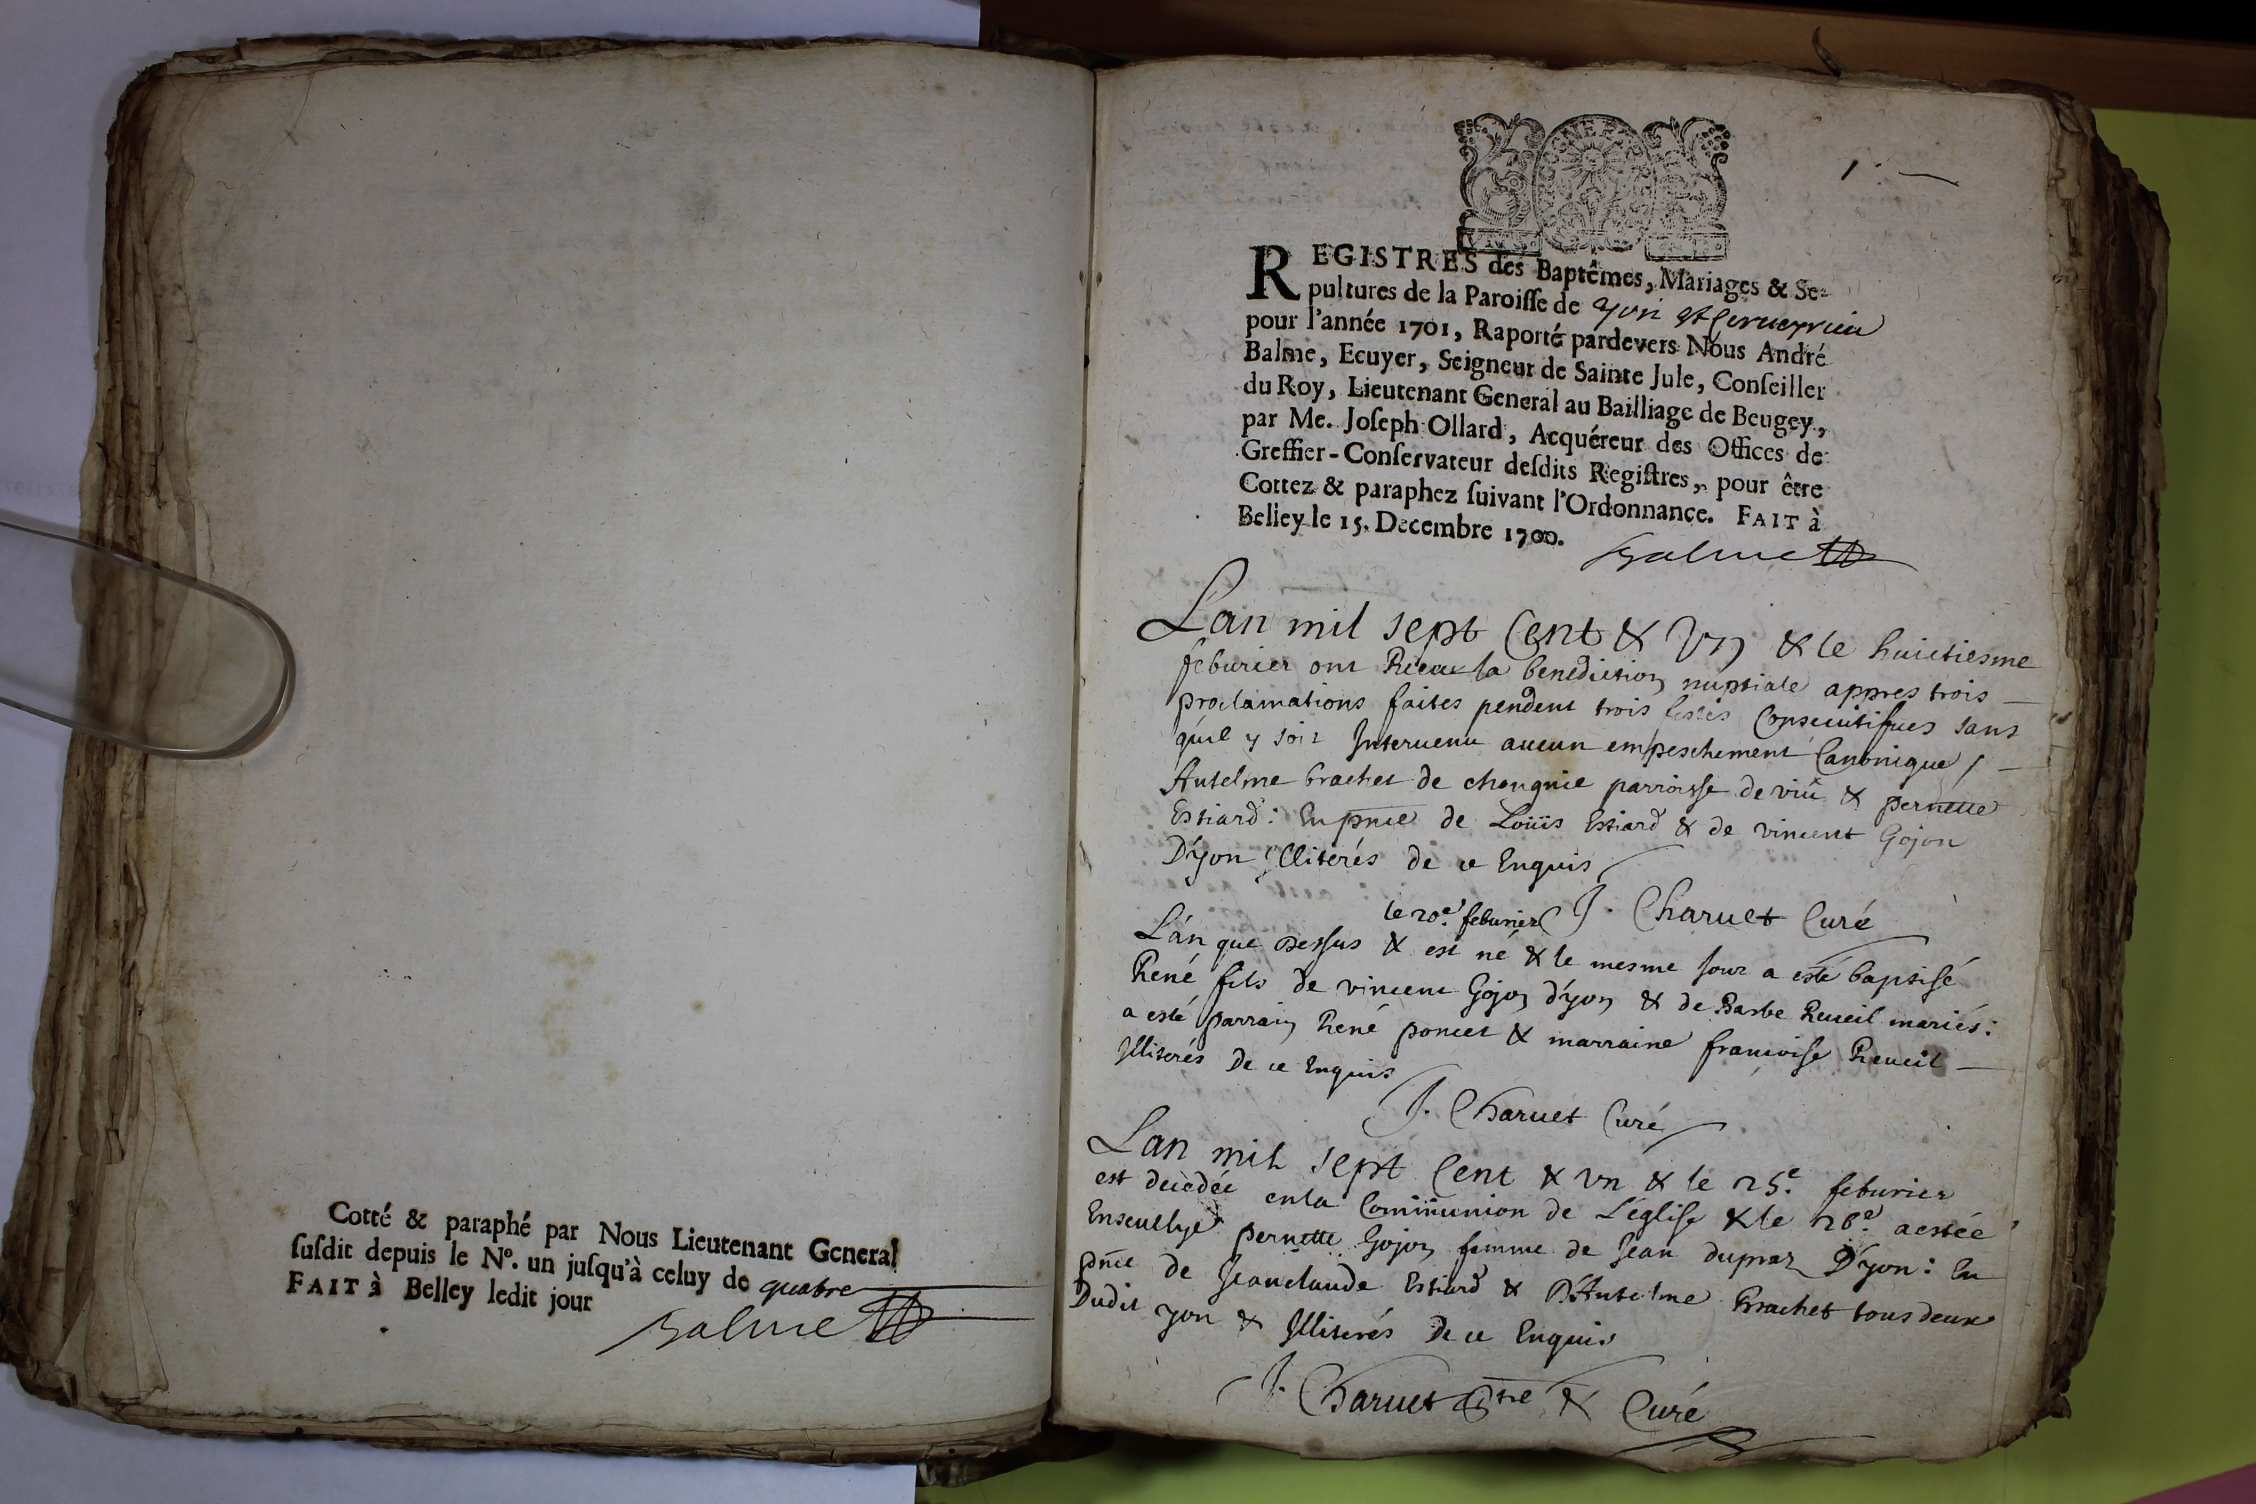 Cotté & paraphé par Nous Lieutenant General
susdit depuis le Nº. un jusqu'à celuy de quatre
FAIT à Belley ledit jour
Balme
1
REGISTRES des Baptêmes, Mariages & Se-
pultures de la Paroisse de yon
pour l'année 1701, Raporté pardevers Nous André
Balme, Ecuyer, Seigneur de Sainte Jule, Conseiller
du Roy, Lieutenant General au Bailliage de Beugey,
par Me. Joseph Ollard, Acquéreur des Offices de
Greffier-Conservateur desdits Registres, pour être
Cottez & paraphez suivant l'Ordonnance. FAIT à
Belley le 15. Decembre 1700.
Balme
Lan mil sept Cent & Vn & le huictiesme
feburier ont Receu la benediction nuptiale appres trois
proclamations faites pendent trois festes Consecutifues sans
quil y soit Interuenu aucun empeschement Canonique /
Antelme brachet de chongnie parroisse de viû & pernette
Estiard: En pnce de Loüis Estiard & de vincent Gojon
D'yon Illiterés de ce Enquis
J. Charuet Curé
le 20e. feburier
L'an que Dessus & est né & le mesme Jour a esté baptisé
René fils de vincent Gojon d'yon & de Barbe Recueil mariés:
a esté parrain René poncet & marraine francoise Recueil
Illiterés De ce Enquis
J. Charuet Curé
Lan mil sept Cent & vn & le 25e. feburier
est decedée en la Communion de L'eglise & le 26e. a estée
Enseuelye pernette Gojon femme de Jean dupraz D'yon: En
pnce de Jeanclaude Estiard & D'Antelme Brachet tous deux
Dudit yon & Illiterés De ce Enquis
J. Charuet ptre & Curé